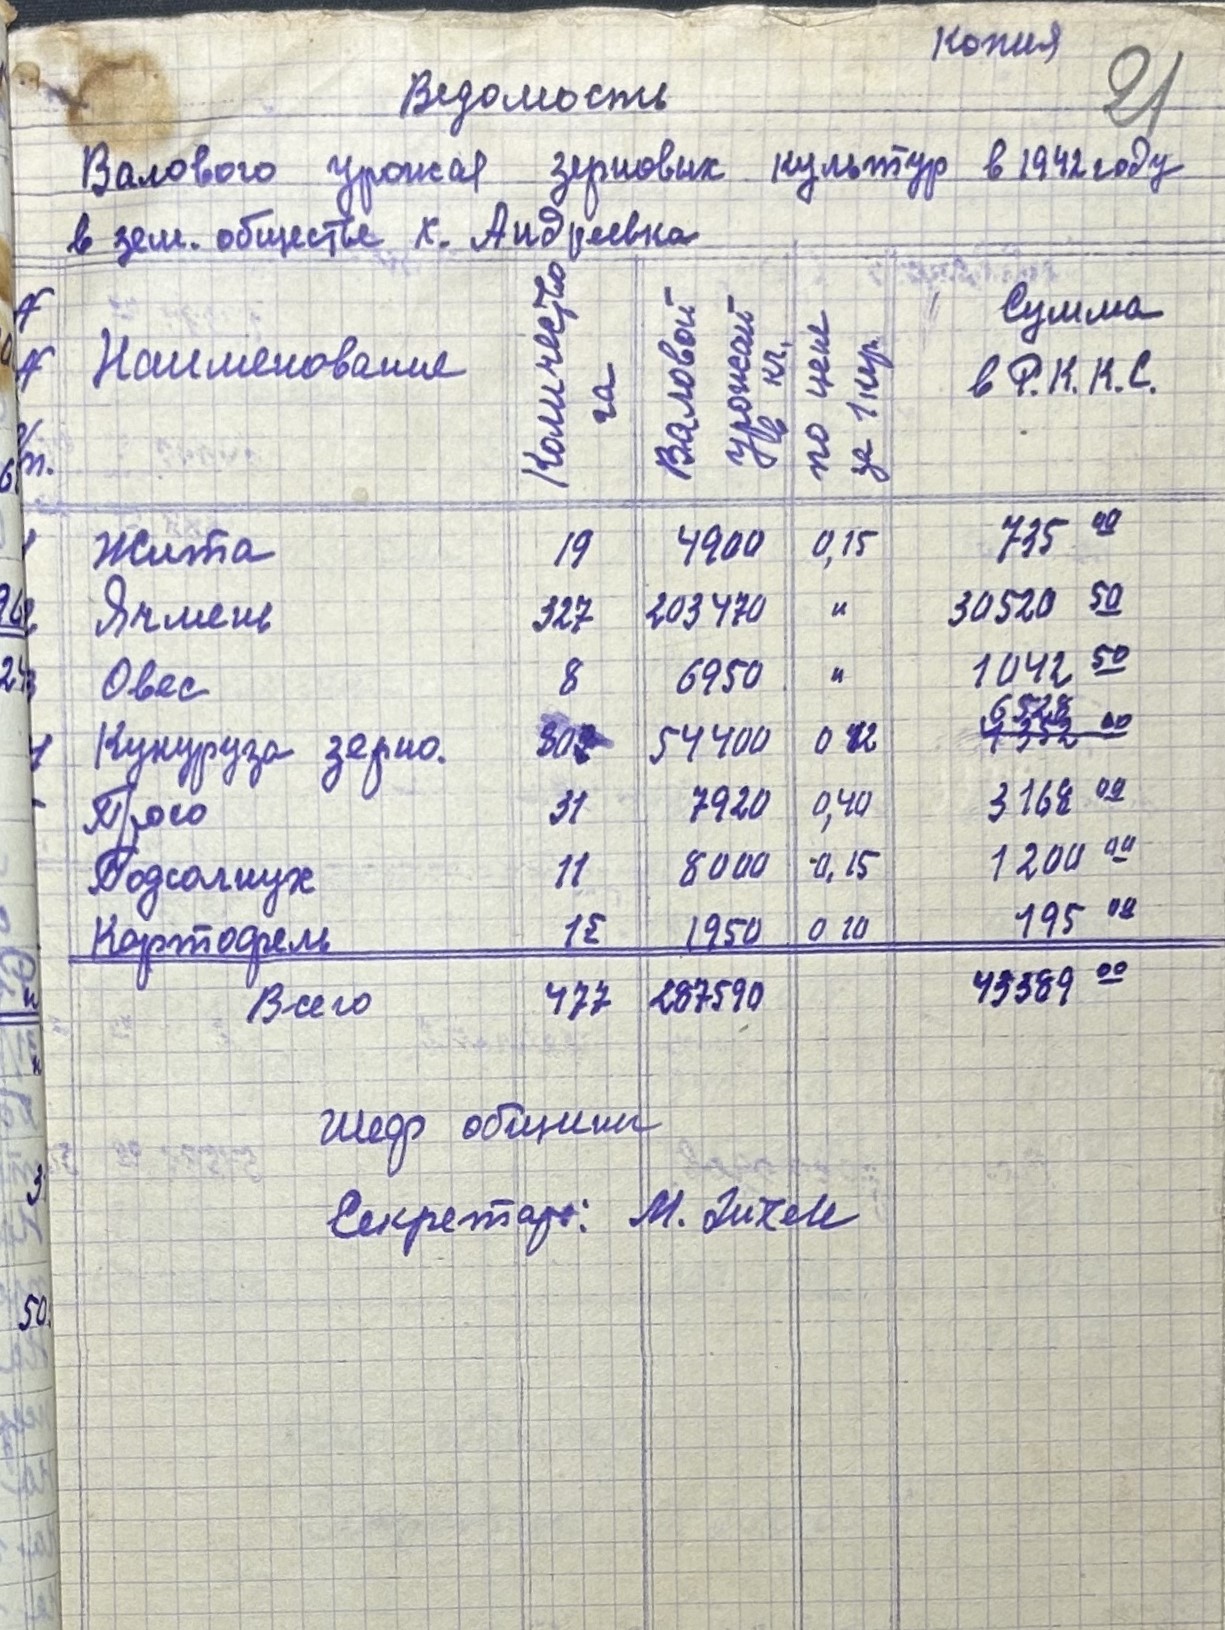 Копия
21
Ведомость
Валового урожая зерновых культур в 1942 году
в зем. обществе х. Андреевка
Наименование Количество га Валовой урожай в кл. по цене за 1 кгр. Сумма в Р.К.К.С.
Жита 19 4900 0,15 735 00
Ячмень 327 203470 " 30520 50
Овес 8 6950 " 1042 50
6528
Кукуруза зерно. 54400 0 12 00
Просо 31 7920 0,40 3168 00
Подсолнух 11 8000 0,15 1200 00
Картофель 1950 0 10 195 00
Всего 477 287590 43389 00
Шедр общины
Секретарь: М.